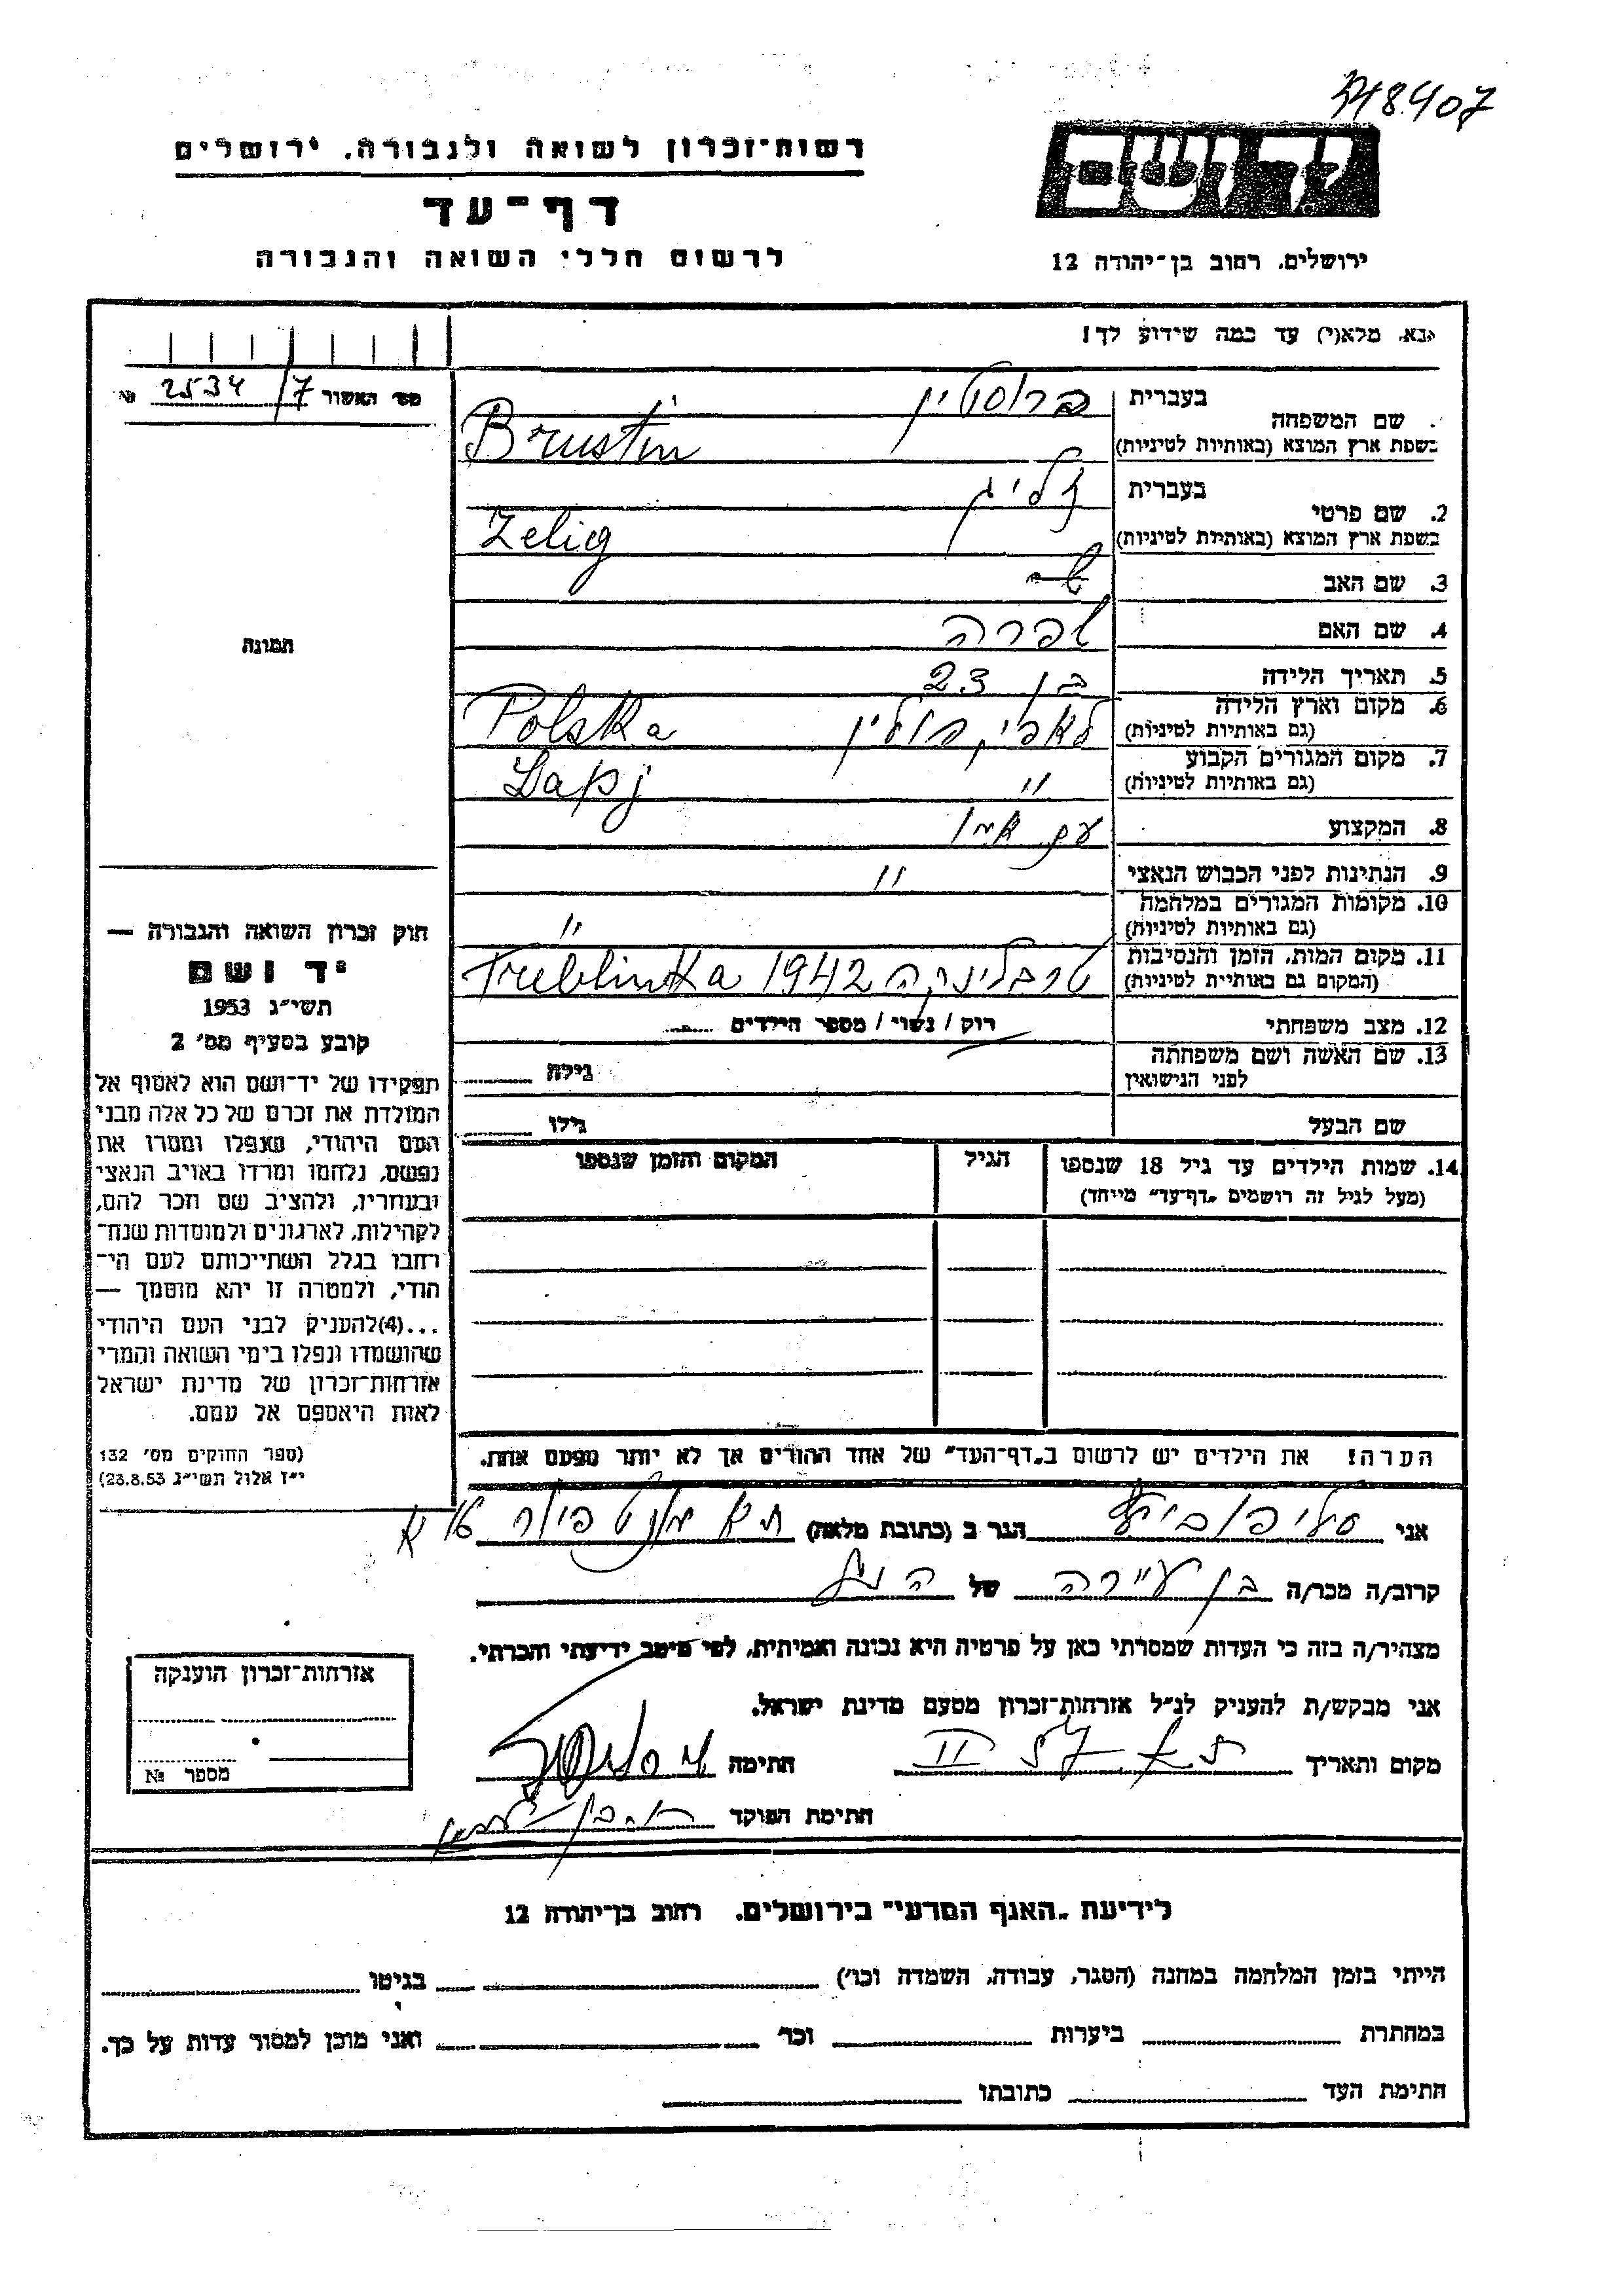 רשות־זכרון לשואה ולגבורה. ירושלים
דף־עד
לרשום חללי השואה והגבורה
יד ושם
ירושלים. רחוב בן־יהודה 12
נא. מלא(י) עד כמה שידוע לך!
מס׳ האשור 2534/7 №
בעברית ברוסטין
שם המשפחה
בשפת ארץ המוצא (באותיות לטיניות) Brustin
בעברית זליג
2. שם פרטי
בשפת ארץ המוצא (באותיות לטיניות) Zelig
3. שם האב
4. שם האם שפרה
5. תאריך הלידה בן 23
6. מקום וארץ הלידה לאפי פולין Polska
(גם באותיות לטיניות)
7. מקום המגורים הקבוע " Łapj
(גם באותיות לטיניות)
8. המקצוע עם אמו
9. הנתינות לפני הכבוש הנאצי "
10. מקומות המגורים במלחמה "
(גם באותיות לטיניות)
11. מקום המות, הזמן והנסיבות טרבלינקה 1942 Treblinka
(המקום גם באותיות לטיניות)
12. מצב משפחתי רוק / נשוי / מספר הילדים
13. שם האשה ושם משפחתה גילה
לפני הנישואין
שם הבעל גילו
14. שמות הילדים עד גיל 18 שנספו הגיל המקום והזמן שנספו
(מעל לגיל זה רושמים „דף־עד״ מייחד)
הערה! את הילדים יש לרשום ב„דף־העד״ של אחד ההורים אך לא יותר מפעם אחת.
תמונה
חוק זכרון השואה והגבורה —
יד ושם
תשי״ג 1953
קובע בסעיף מס׳ 2
תפקידו של יד־ושם הוא לאסוף אל
המולדת את זכרם של כל אלה מבני
העם היהודי, שנפלו ומסרו את
נפשם, נלחמו ומרדו באויב הנאצי
ובעוזריו, ולהציב שם וזכר להם,
לקהילות, לארגונים ולמוסדות שנח־
רבו בגלל השתייכותם לעם הי־
הודי, ולמטרה זו יהא מוסמך —
...(4)להעניק לבני העם היהודי
שהושמדו ונפלו בימי השואה והמרי
אזרחות־זכרון של מדינת ישראל
לאות היאספם אל עמם.
(ספר החוקים מס׳ 132
י״ז אלול תשי״ג 23.8.53)
אני הגר ב (כתובת מלאה) ת״א
קרוב/ה מכר/ה בן עיירה של
מצהיר/ה בזה כי העדות שמסרתי כאן על פרטיה היא נכונה ואמיתית, לפי מיטב ידיעתי והכרתי.
אני מבקש/ת להעניק לנ״ל אזרחות־זכרון מטעם מדינת ישראל.
מקום ותאריך ת.א. חתימה
חתימת הפוקד
אזרחות־זכרון הוענקה
מספר №
לידיעת „האגף המדעי״ בירושלים. רחוב בן־יהודה 12
הייתי בזמן המלחמה במחנה (הסגר, עבודה, השמדה וכו׳) בגיטו
במחתרת ביערות וכו׳ ואני מוכן למסור עדות על כך.
חתימת העד כתובתו